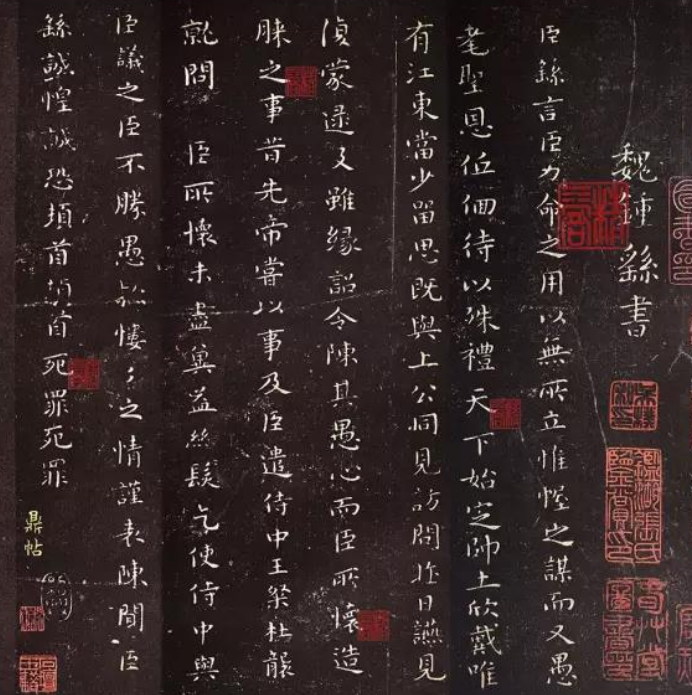 魏鍾繇書
臣繇言臣力命之用以無所立惟幄之謀而又愚
老聖恩低佪待以殊禮天下始定帥土欣戴唯
有江東當少留思既與上公同見訪問昨日讌見
復蒙逮及雖緣詔令陳其愚心而臣所懷造
膝之事昔先帝嘗以事及臣遣侍中王粲杜襲
就問 臣所懷未盡冀益絲髮乞使侍中與
臣議之臣不勝愚款慺々之情謹表陳聞臣
繇誠惶誠恐頓首頓首死罪死罪
鼎帖